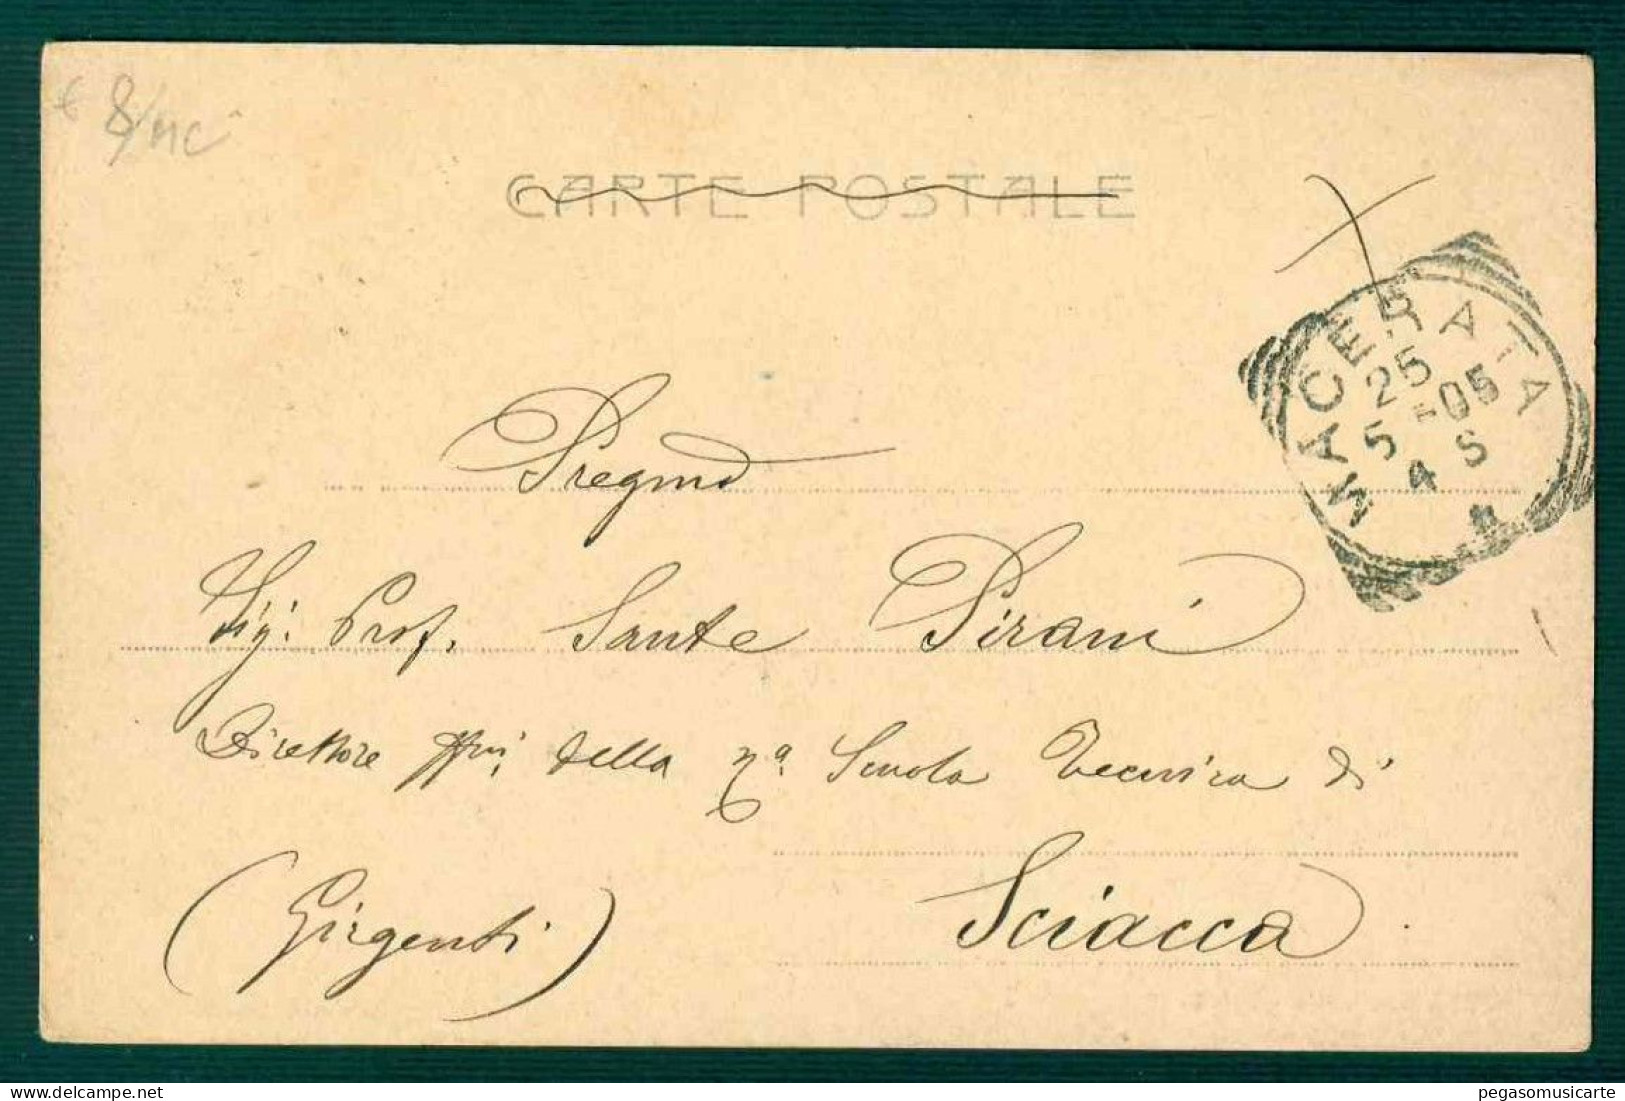 € 8/MC
CARTE POSTALE
MACERATA
25
5 - 05
4 S
Pregmo
Sig. Prof. Sante Pirani
Direttore della Ra. Scuola Tecnica di
Sciacca
(Girgenti)
pegasomusicarte